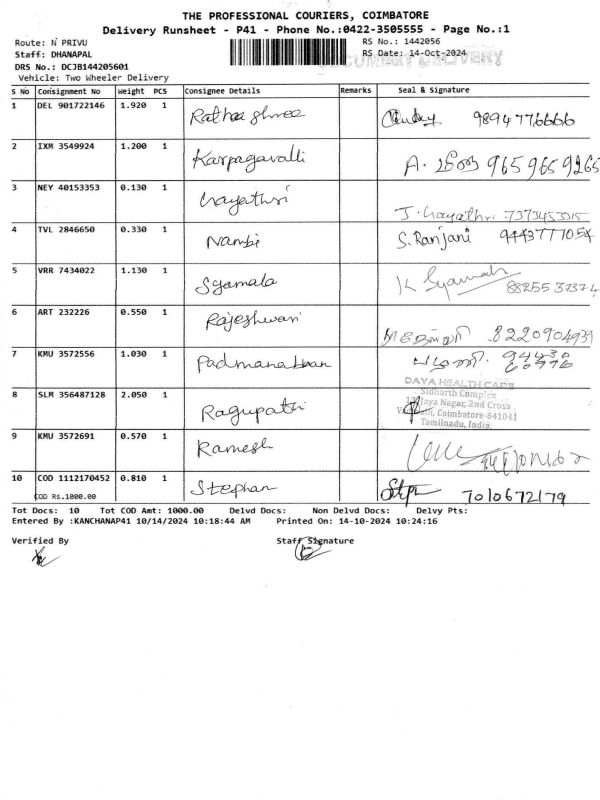 THE PROFESSIONAL COURIERS, COIMBATORE
Delivery Runsheet - P41 - Phone No.:0422-3505555 - Page No.:1
Route: N PRIVU RS No.: 1442056
Staff: DHANAPAL RS Date: 14-Oct-2024
DOCUMENT DELIVERY
DRS No.: DCJB144205601
Vehicle: Two Wheeler Delivery
S No Consignment No Weight PCS Consignee Details Remarks Seal & Signature
1 DEL 901722146 1.920 1 Rathea shree 9894776666
2 IXM 3549924 1.200 1 Karpagavalli A. 9659659265
3 NEY 40153353 0.130 1 Gayathri J. Gayathri 7373453315
4 TVL 2846650 0.330 1 Nambi S. Ranjani 9443777054
5 VRR 7434022 1.130 1 Syamala K Syamala 88255 37374
6 ART 232226 0.550 1 Rajeshwari 8220904939
7 KMU 3572556 1.030 1 Padmanabhan 94430
60776
8 SLM 356487128 2.050 1 Ragupathi
DAYA HEALTH CARE
Sidharth Complex
Jaya Nagar, 2nd Cross
Coimbatore-641041
Tamilnadu, India.
9 KMU 3572691 0.570 1 Ramesh
10 COD 1112170452 0.810 1 Stephan Stpn 7010672179
COD Rs.1000.00
Tot Docs: 10 Tot COD Amt: 1000.00 Delvd Docs: Non Delvd Docs: Delvy Pts:
Entered By :KANCHANAP41 10/14/2024 10:18:44 AM Printed On: 14-10-2024 10:24:16
Verified By Staff Signature